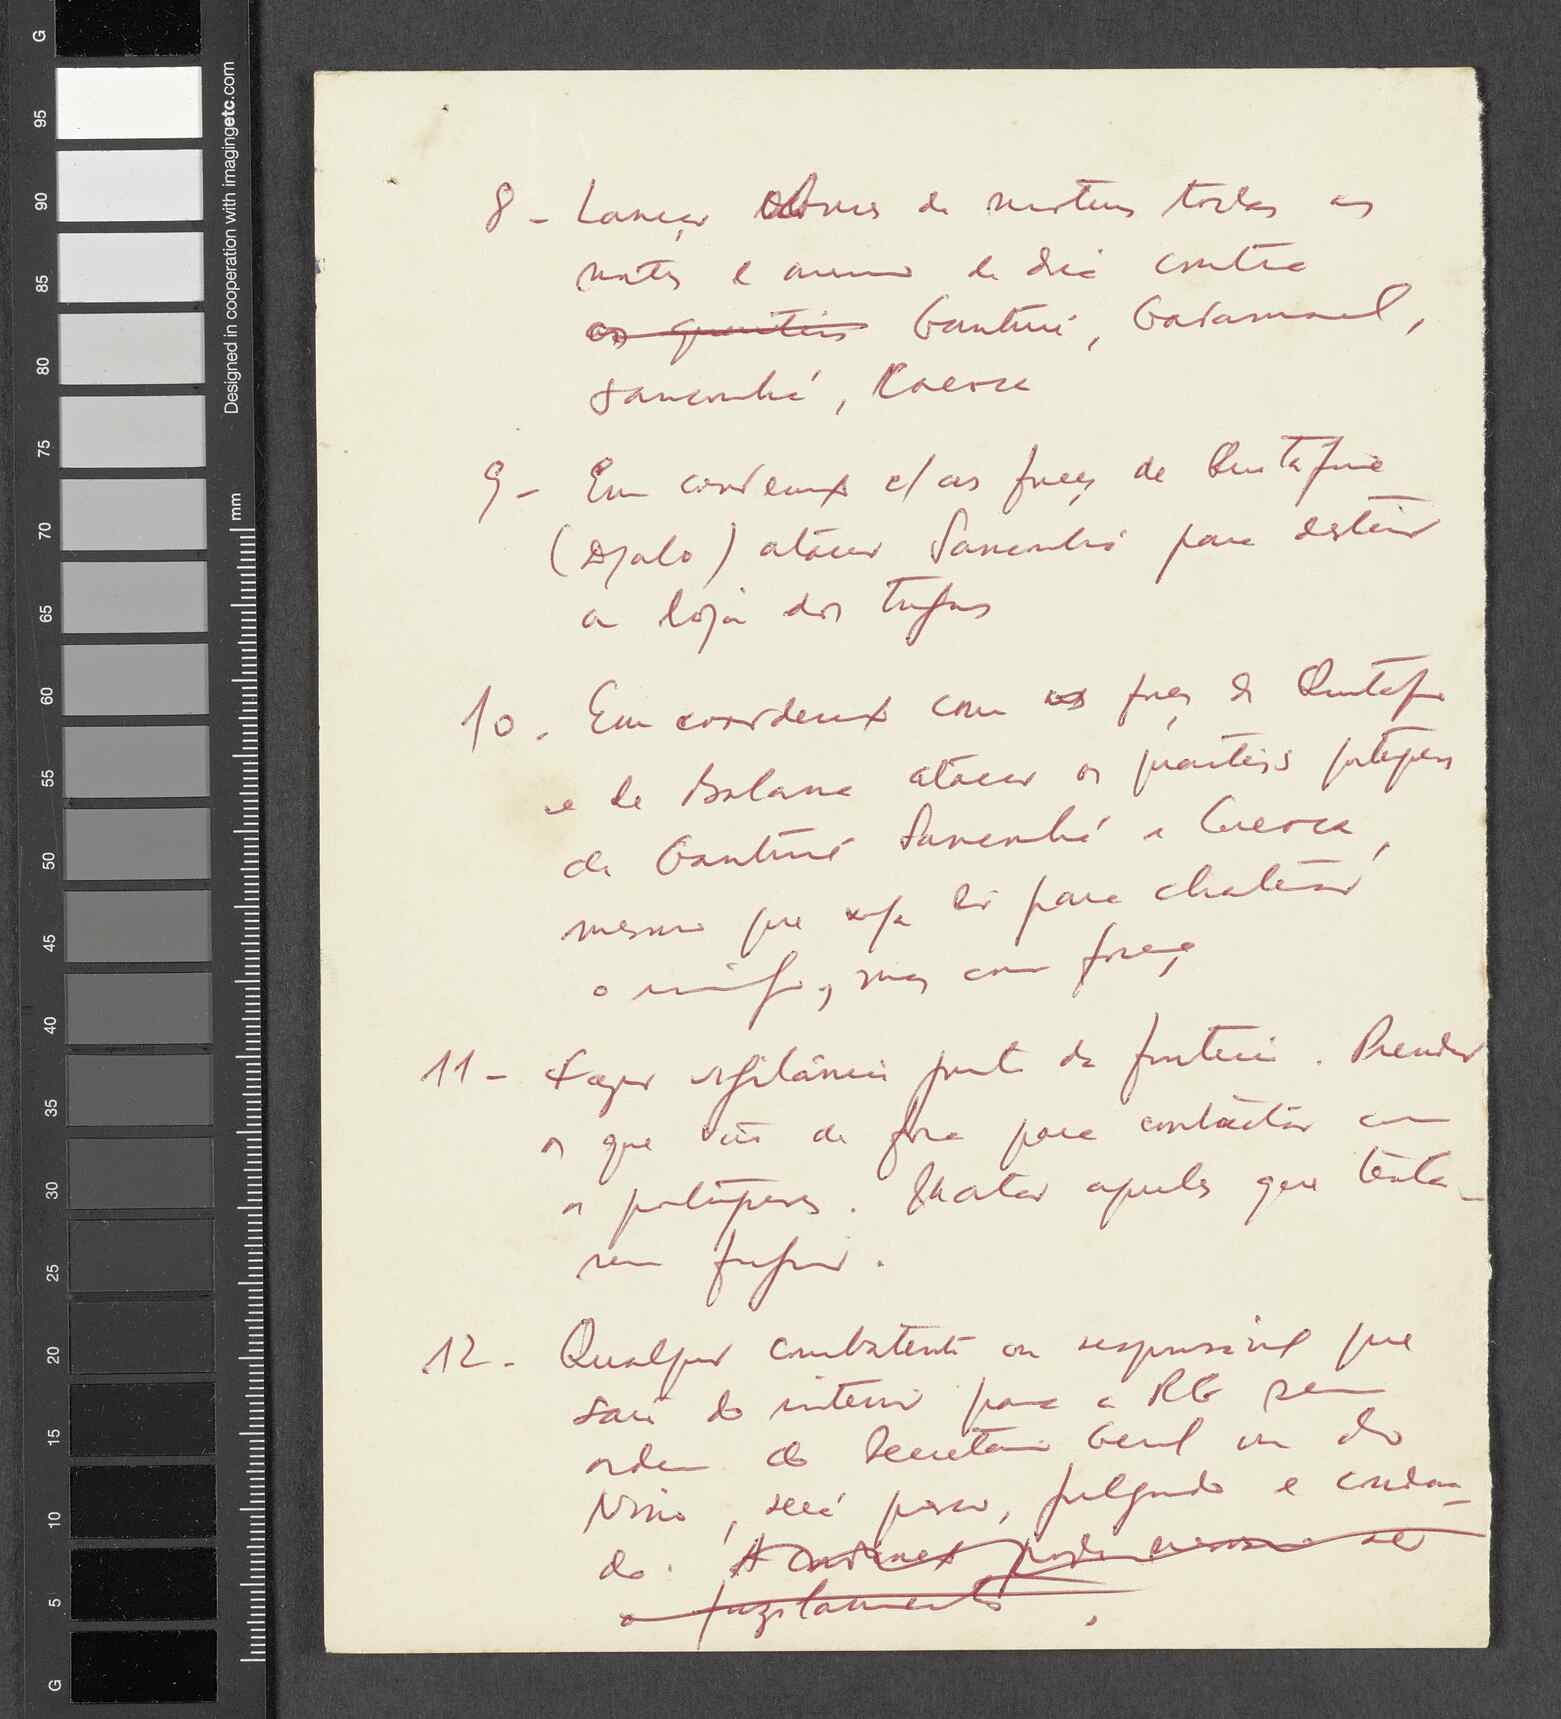 G
95
90
85
80
75
70
65
60
55
50
45
40
35
30
25
20
15
10
5
G
Designed in cooperation with imagingetc.com
mm
8 - Lançar de morteiros todas as
noites e mesmo de dia contra
os quartéis Ganturé, Gadamael,
Sanconhá, Cacoca
9 - Em coordenação c/ as forças de Quitafine
(Djalo) atacar Sanconhá para destruir
a loja dos tugas
10 - Em coordenação com as forças de Quitafine
e de Balana atacar os quartéis portugueses
de Ganturé Sanconhá e Cacoca,
mesmo que seja só para chatear
o inimigo, mas com força
11 - Fazer vigilância junto da fronteira. Prender
os que vão de fora para contactar com
os portugueses. Matar aqueles que tenta-
rem fugir.
12 - Qualquer combatente ou responsável que
sair do interior para a RG sem
ordem do Secretário Geral ou do
Nino, será preso, julgado e condena-
do. A condenação pode mesmo ser
o fuzilamento.